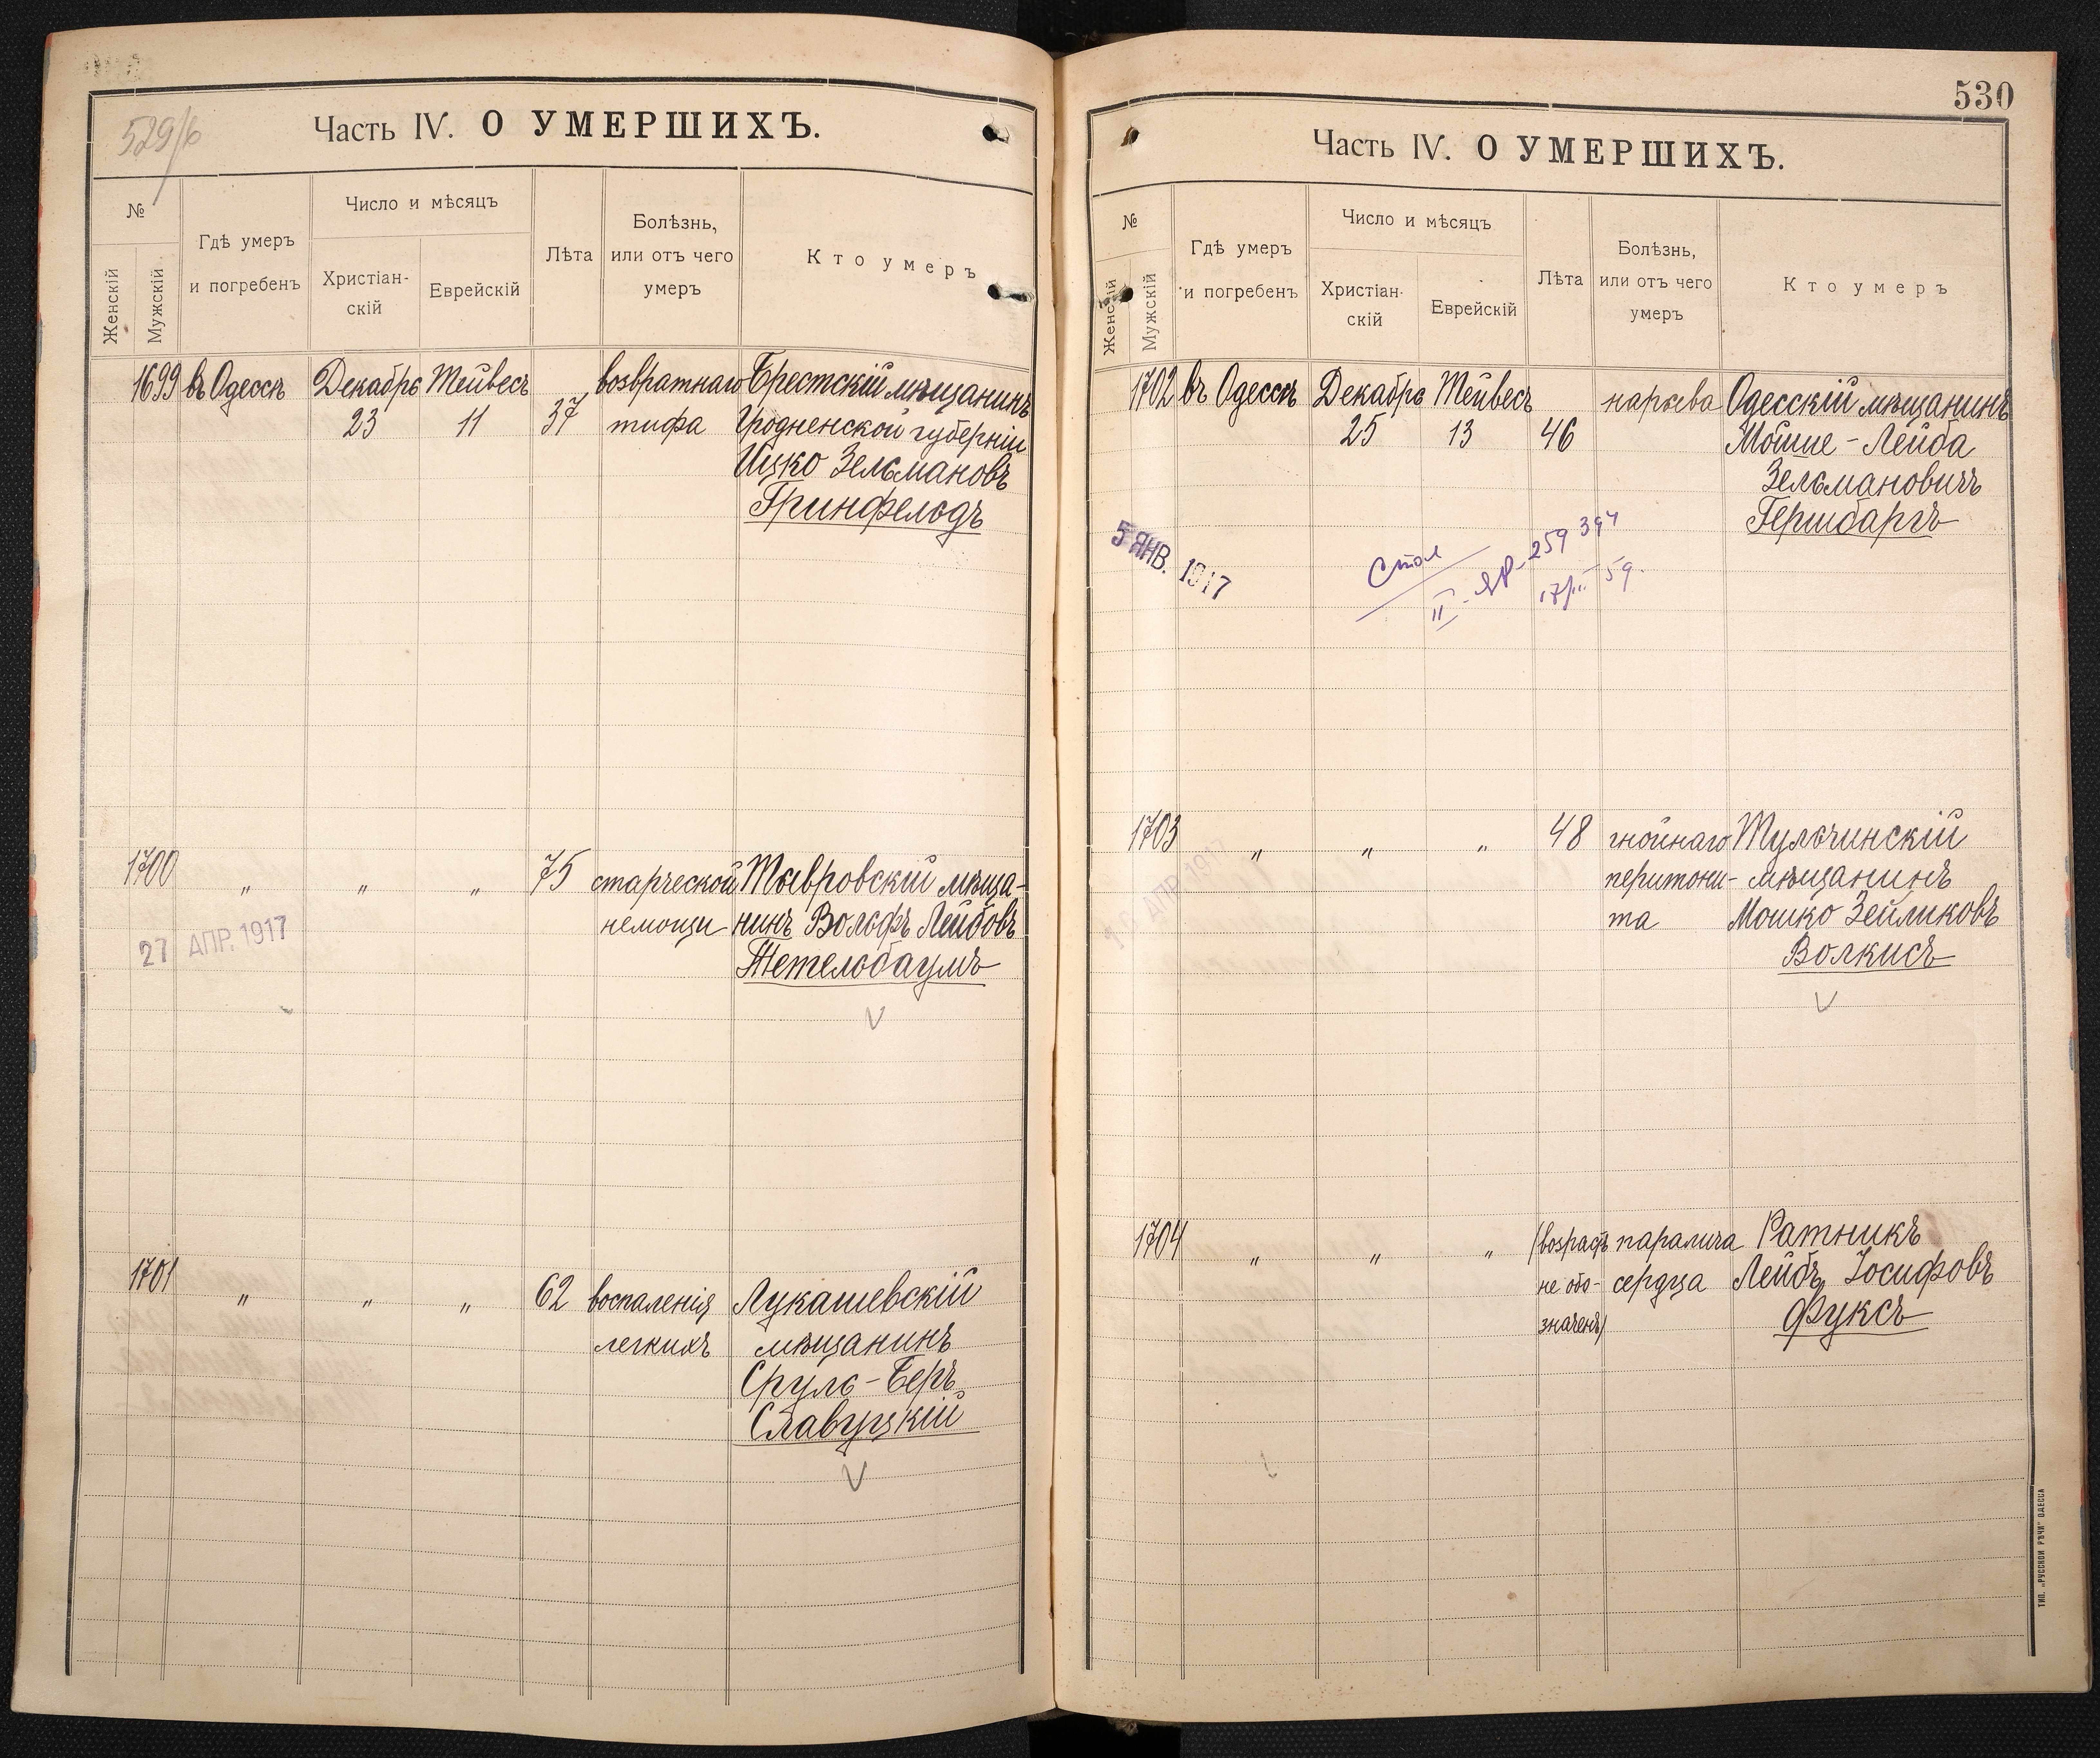 529/б
Часть IV. О УМЕРШИХЪ.
№
Женскій
Мужскій
Гдѣ умеръ
и погребенъ
Число и мѣсяцъ
Христіан-
скій
Еврейскій
Лѣта
Болѣзнь,
или отъ чего
умеръ
Кто умеръ
1699 въ Одессѣ Декабрь Тейвесъ возвратнаго Брестскій мѣщанинъ
23 11 37 тифа Гродненской губерніи
Ицко Зельмановъ
Гринфельдъ
1700 „ „ „ 75 старческой Тывровскій мѣща-
немощи нинъ Вольфъ Лейбовъ
Тетельбаумъ
27 АПР. 1917
1701 „ „ „ 62 воспаленія Лукашевскій
легкихъ мѣщанинъ
Сруль-Беръ
Славуцкій
530
Часть IV. О УМЕРШИХЪ.
№
Женскій
Мужскій
Гдѣ умеръ
и погребенъ
Число и мѣсяцъ
Христіан-
скій
Еврейскій
Лѣта
Болѣзнь,
или отъ чего
умеръ
Кто умеръ
1702 въ Одессѣ Декабрь Тейвесъ нарыва Одесскій мѣщанинъ
25 13 46 Мошше-Лейба
Зельмановичъ
Гершбаргъ
5 ЯНВ. 1917
Стол
II 259394
59
1703 „ „ „ 48 гнойнаго Тульчинскій
перитони- мѣщанинъ
та Мошко Зейликовъ
Волкисъ
АПР 1917
1704 „ „ „ (возрастъ паралича Ратникъ
не обо- сердца Лейбъ Іосифовъ
значенъ) Фуксъ
ТИП. „РУССКОЙ РѢЧИ" ОДЕССА